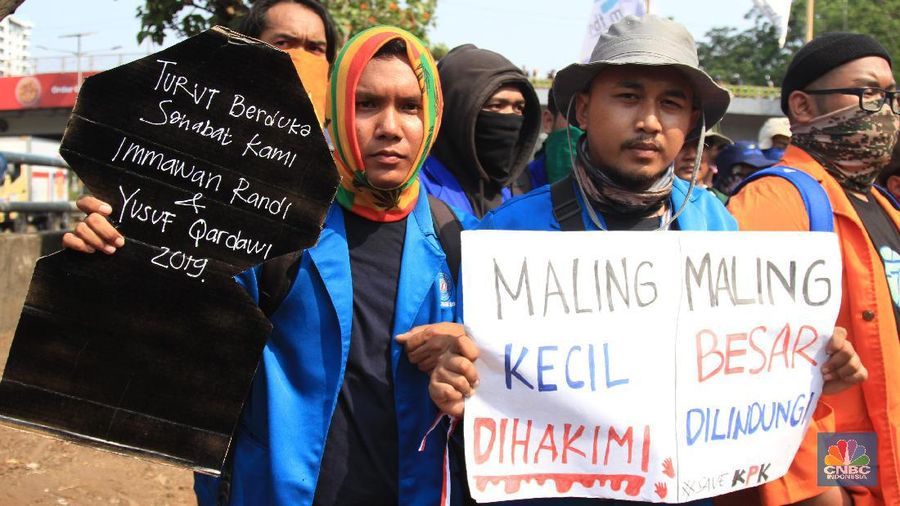 TURUT Berduka
Sahabat Kami
Immawan Randi
&
Yusuf Qardawi
2019.
MALING
KECIL
DIHAKIMI
MALING
BESAR
DILINDUNGI
#SAVE KPK
CNBC
INDONESIA